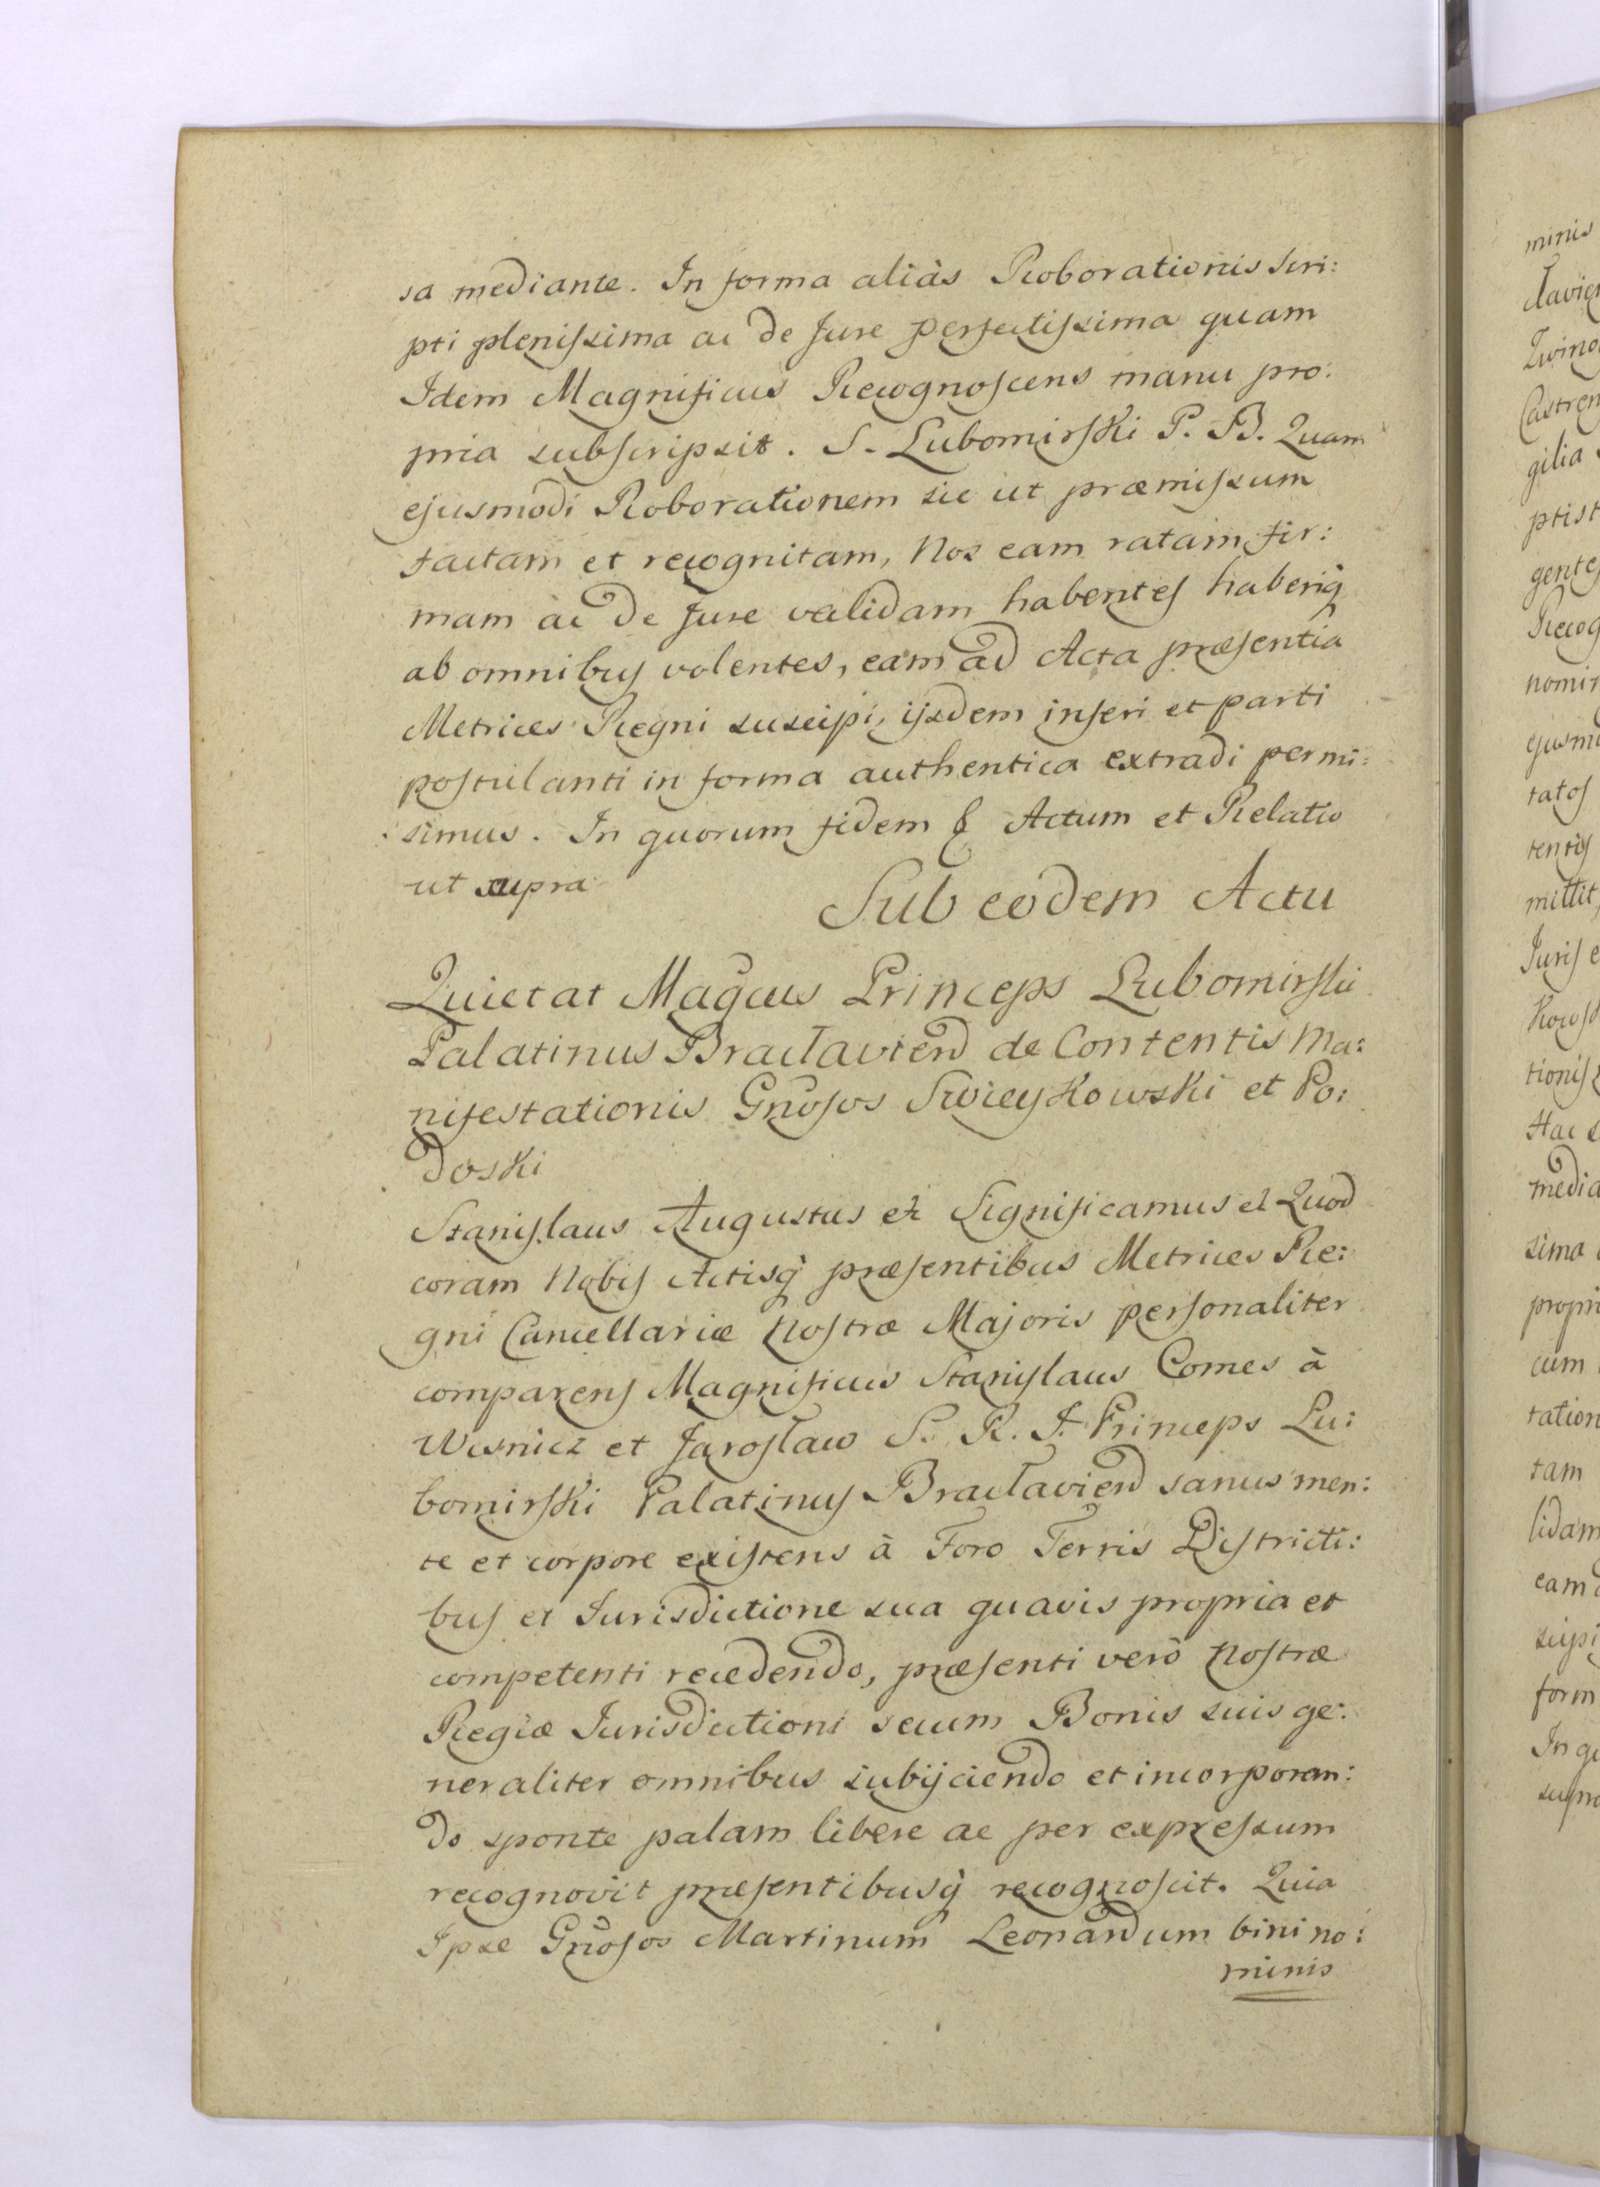 sa mediante. In forma aliàs Roborationis Scri:
pti plenissima ac de Jure perfectissima quam
Idem Magnificus Recognoscens manu pro:
pria subscripsit. S. Lubomirski P. B. Quam
ejusmodi Roborationem sic ut præmissum
factam et recognitam, Nos eam ratam fir:
mam ac de Jure validam habentes haberiq̃
ab omnibus volentes, eam ad Acta præsentia
Metrices Regni suscipi, ijsdem inseri et parti
postulanti in forma authentica extradi permi:
simus. In quorum fidem & Actum et Relatio
ut supra
Sub eodem Actu
Quietat Mag̃cus Princeps Lubomirski
Palatinus Braclavien̄ de Contentis Ma:
nifestationis Gn̄osos Swieykowski et Po:
doski
Stanislaus Augustus et Significamus et Quod
coram Nobis Actisq̃ præsentibus Metrices Re:
gni Cancellariæ Nostræ Majoris personaliter
comparens Magnificus Stanislaus Comes à
Wisnicz et Jarosław S. R. J. Princeps Lu:
bomirski Palatinus Braclavien̄ sanus men:
te et corpore existens à Foro Terris Districti:
bus et Jurisdictione sua quavis propria et
competenti recedendo, præsenti verò Nostræ
Regiæ Jurisdictioni secum Bonis suis ge:
neraliter omnibus subijciendo et incorporan:
do sponte palam libere ac per expressum
recognovit præsentibusq̃ recognoscit. Quia
Ipse Gn̄osos Martinum Leonardum bini no:
minis
minis
Castren
gilia
ptist
gentes
Recog
nomin
ejusmo
tatos
tentis
mittit,
Juris e
Kowsk
tionis
Hac
media
sima
propri
cum
tation
tam
lidam
eam
scipi
form
In qu
supra